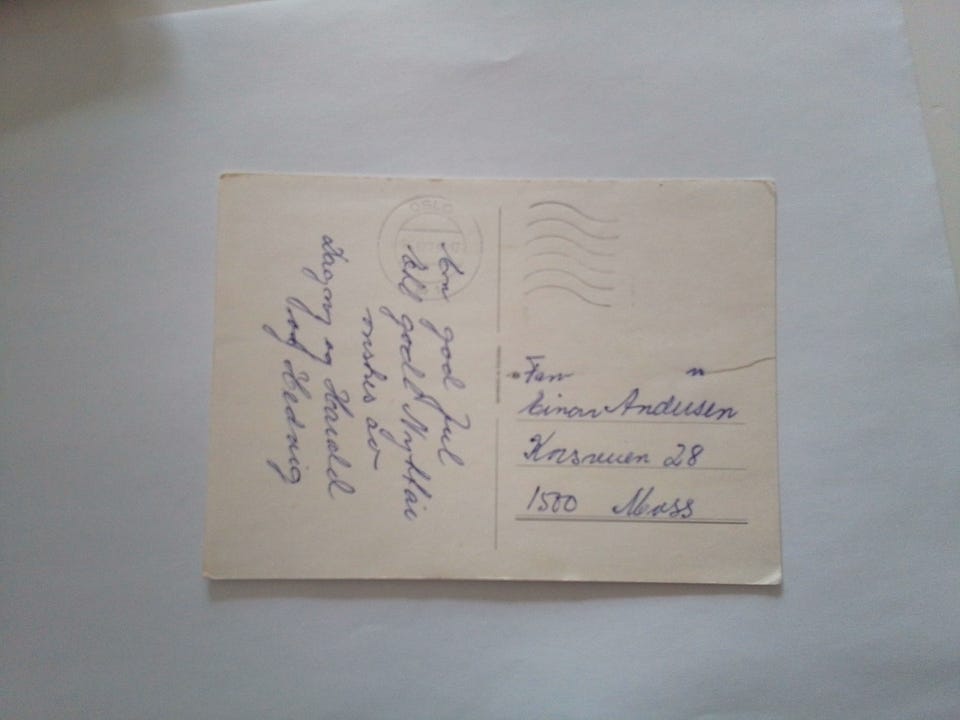 OSLO
En god Jul
till godt Nyttår
ønskes av
Dagny og Harald
og Hedvig
Fam
Einar Andersen
Korsveien 28
1500 Moss